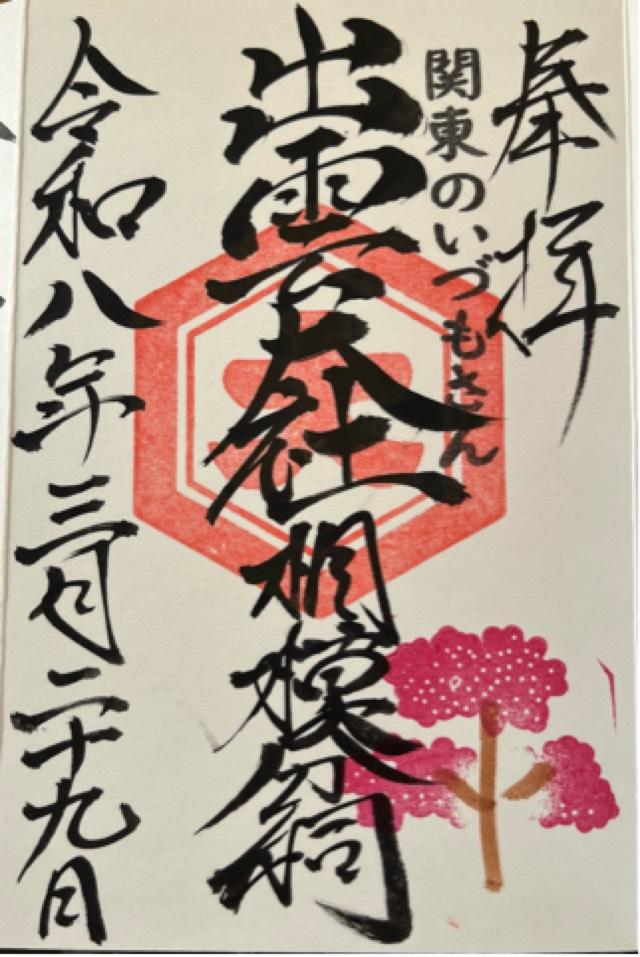 奉拝
関東のいづもさん
出雲大社相模分祠
令和八年三月二十九日